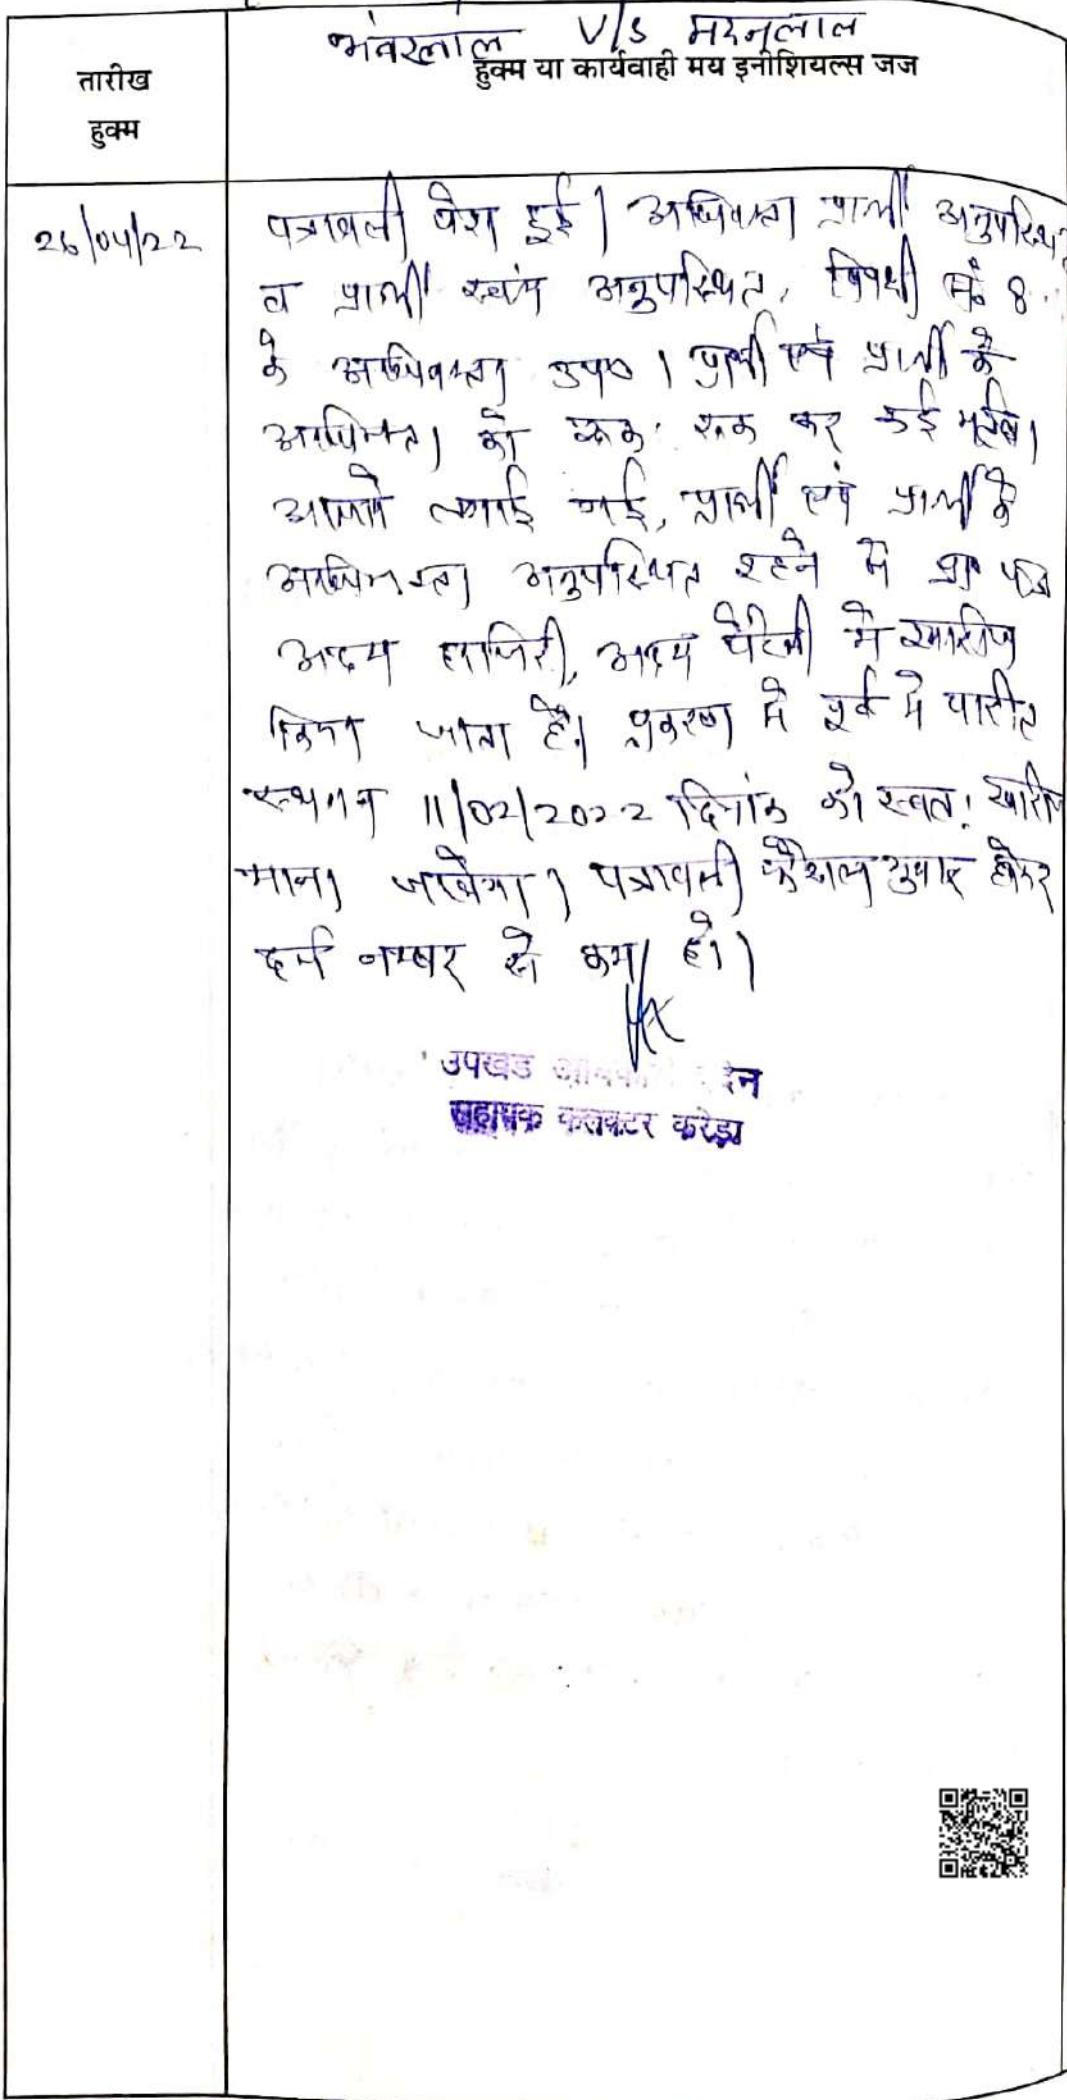 भंवरलाल V/S मदनलाल
तारीख
हुक्म
हुक्म या कार्यवाही मय इनीशियल्स जज
26/04/22
पत्रावली पेश हुई। अधिवक्ता प्रार्थी अनुपस्थित
व प्रार्थी स्वंय अनुपस्थित, विपक्षी सं 8
के अधिवक्ता उप०। प्रार्थी एवं प्रार्थी के
अधिवक्ता को रूक रूक कर कई मर्तबा
आवाजे लगाई गई, प्रार्थी एवं प्रार्थी के
अधिवक्ता अनुपस्थित रहने से प्रा० पत्र
अदम हाजिरी, अदम पैरवी मे खारीज
किया जाता है। प्रकरण मे पूर्व मे पारीत
स्थगन 11/02/2022 दिनांक को स्वत: खारीज
माना जावेगा। पत्रावली फैसल शुमार होकर
दर्ज नम्बर से कम हो।
उपखंड
सहायक कलक्टर करेड़ा